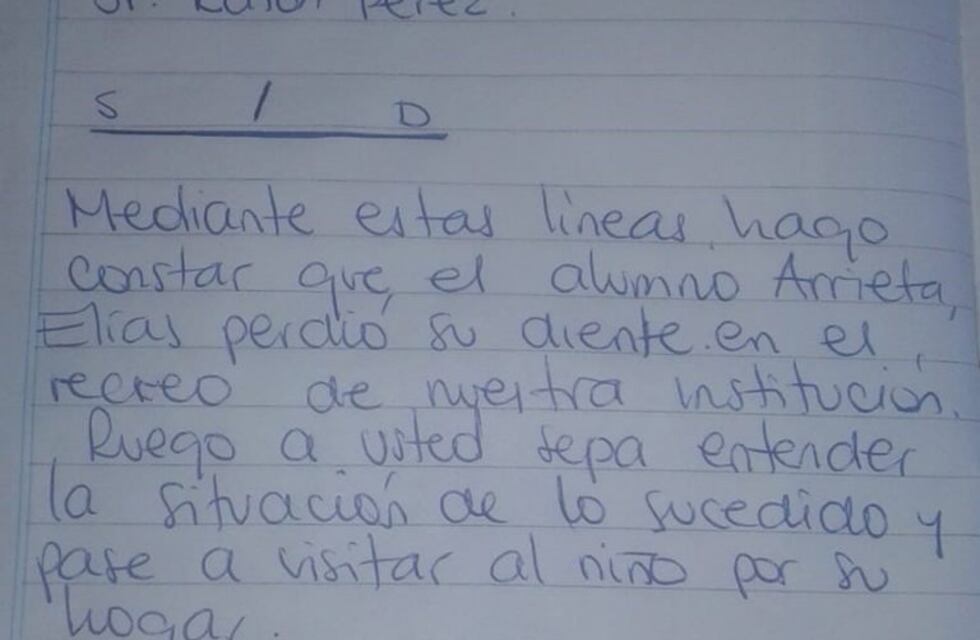 Sr. Ratón Pérez.
S / D
Mediante estas lineas, hago
constar que, el alumno Arrieta,
Elías perdió su diente en el
recreo de nuestra institución.
Ruego a usted sepa entender
la situación de lo sucedido y
pase a visitar al niño por su
hogar.